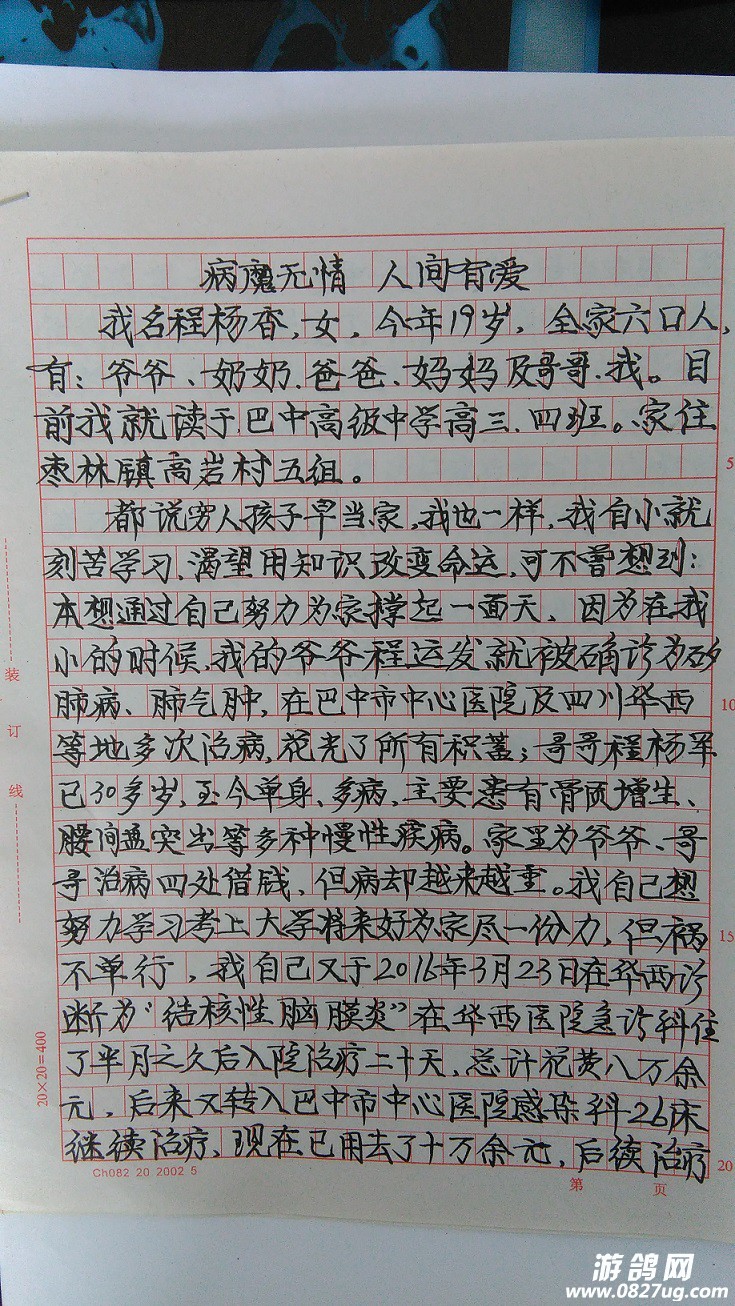 病魔无情 人间有爱
我名程杨香,女,今年19岁,全家六口人,
有:爷爷、奶奶、爸爸、妈妈及哥哥、我。目
前我就读于巴中高级中学高三.四班。家住
枣林镇高岩村五组。
都说穷人孩子早当家,我也一样,我自小就
刻苦学习,渴望用知识改变命运,可不曾想到:
本想通过自己努力为家撑起一面天、因为在我
小的时候,我的爷爷程运发就被确诊为矽
肺病、肺气肿,在巴中市中心医院及四川华西
等地多次治病,花光了所有积蓄;哥哥程杨军
已30多岁,至今单身、多病,主要患有骨质增生、
腰间盘突出等多种慢性疾病。家里为爷爷、哥
哥治病四处借钱,但病却越来越重。我自己想
努力学习考上大学将来好为家尽一份力,但祸
不单行,我自己又于2016年3月23日在华西诊
断为“结核性脑膜炎”在华西医院急诊科住
了半月之久后入院治疗二十天,总计花费八万余
元,后来又转入巴中市中心医院感染科26床
继续治疗,现在已用去了十万余元,后续治疗
5
10
15
20
装
订
线
20×20=400
Ch082 20 2002 5
第 页
游鸽网
www.0827ug.com